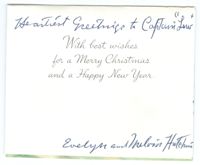 Heartiest Greetings to Captain "Lew"
With best wishes
for a Merry Christmas
and a Happy New Year
Evelyn and Melvin